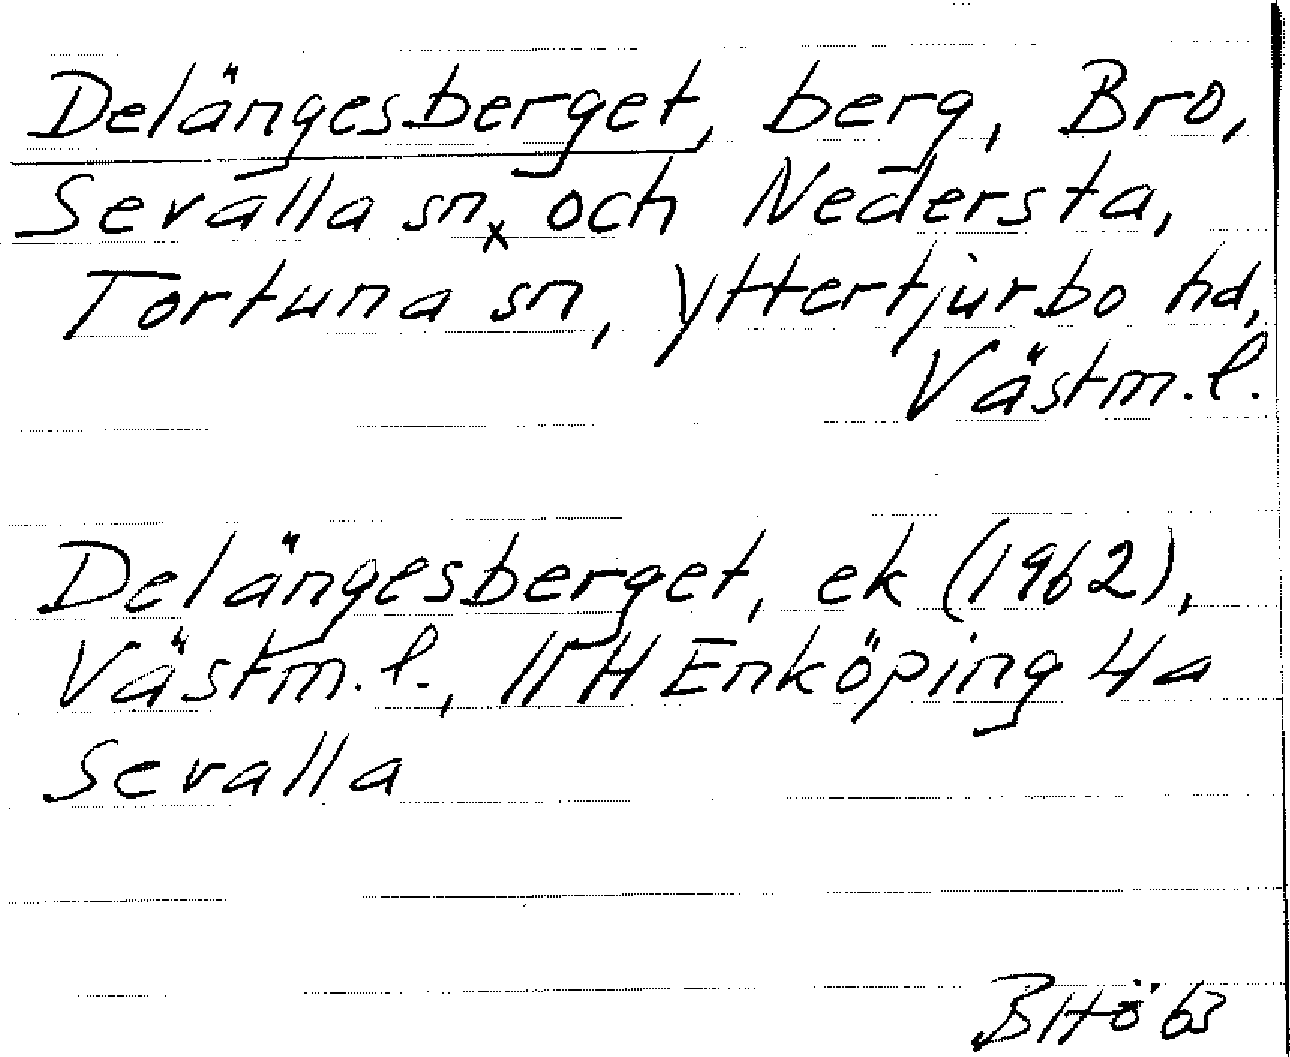 Delängesberget, berg, Bro,
Sevalla sn x och Nedersta,
Tortuna sn, Yttertjurbo hd,
Västm.l.
Delängesberget, ek (1962),
Västm.l., 11H Enköping 4a
Sevalla
BHö 63